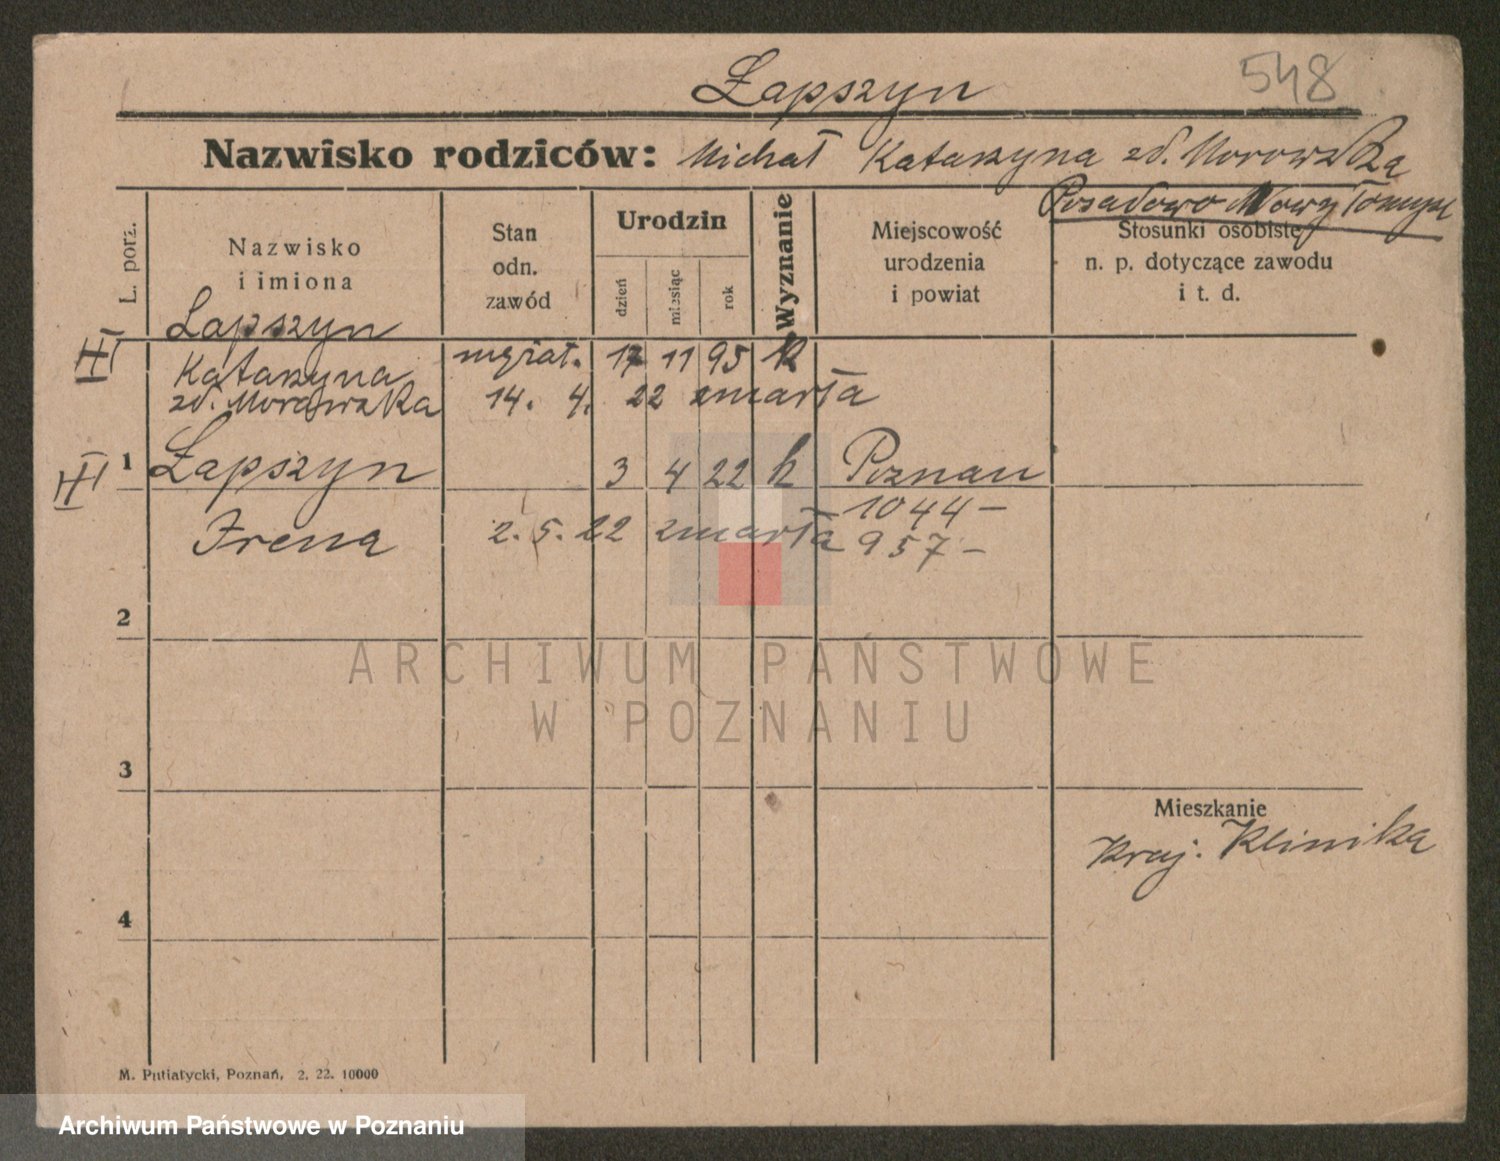 Łapszyn 548
Nazwisko rodziców: Michał Katarzyna zd. Morowska
Posadowo Nowy Tomyśl
L. porz.
Nazwisko
i imiona
Stan
odn.
zawód
Urodzin
dzień
miesiąc
rok
Wyznanie
Miejscowość
urodzenia
i powiat
Stosunki osobiste
n. p. dotyczące zawodu
i t. d.
Łapszyn
Katarzyna 17 11 95 k
zd. Morawska 14. 4. 22 zmarła
1 Łapszyn 3 4 22 k Poznań
1044 –
Irena 2. 5. 22 zmarła 957 –
2
3
Mieszkanie
Kraj. Klinika
4
M. Putiatycki, Poznań, 2. 22. 10000
ARCHIWUM PAŃSTWOWE
W POZNANIU
Archiwum Państwowe w Poznaniu